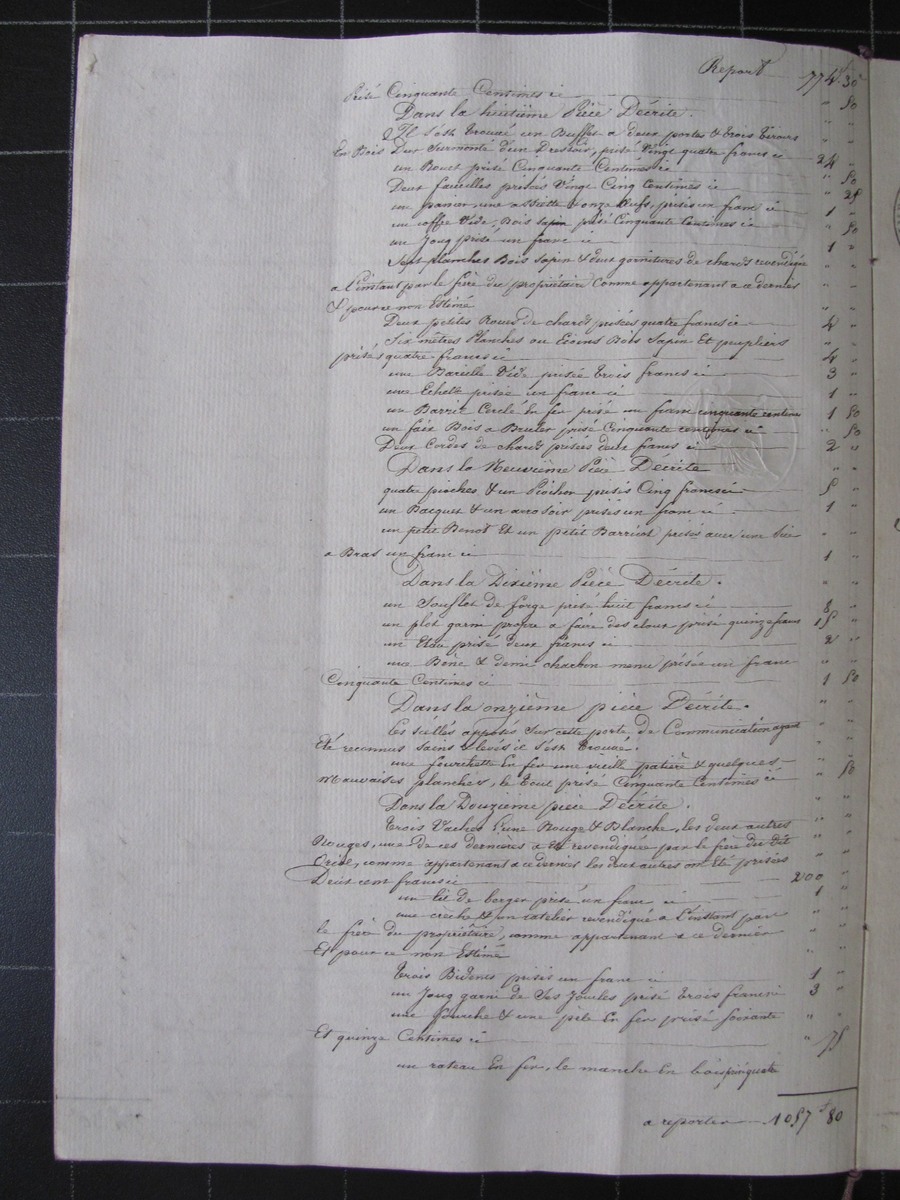 Report 774 30
Prisé Cinquante Centimes ci " 50
Dans la huitième Pièce Décrite.
Il s'est trouvé un Buffet a deux portes & trois tiroirs
En Bois Dur Surmonté d'un Dressoir, prisé Vingt quatre francs ci 24 "
un Rouet prisé Cinquante Centimes ci " 50
Deux faucilles prisées Vingt Cinq Centimes ci " 25
un panier, une assiette & onze Œufs, prisés un franc ci 1 "
un coffre Vide, Bois Sapin prisé Cinquante Centimes ci " 50
un Joug prisé un franc ci 1 "
Sept planches Bois Sapin & deux garnitures de chards revendiqué
a l'instant par le frère du propriétaire Comme appartenant a a dernier
& pour ce non Estimé " "
Deux petites Roues de chards prisées quatre francs ci 4 "
Six mètres Planches ou Ecoins Bois Sapin Et peupliers " "
prisés quatre francs ci 4 "
une Barielle Vide prisée trois francs ci 3 "
une Echele prisée un franc ci 1 "
un Barrit Cerclé En fer prisé un franc cinquante centimes 1 50
un faix Bois a Bruler prisé Cinquante centimes ci " 50
Deux Cordes de chards prisées deux francs ci 2 "
Dans la Neuvième Pièce Décrite " "
quatre pioches & un Piochon prisés Cinq francs ci 5 "
un Bacquet & un arrosoir prisés un franc ci 1 "
un petit Benot Et un petit Barricot prisés avec une Scie " "
a Bras un franc ci 1 "
Dans la Dixième Pièce Décrite. " "
un Souflet de forge prisé huit francs ci 8 "
un plot garni propre a faire des cloux prisé quinze francs 15 "
un Etau prisé deux francs ci 2 "
une Bène & demi charbon menu prisée un franc " "
Cinquante Centimes ci 1 50
Dans la onzième pièce Décrite. " "
les scellés apposés Sur cette porte de Communication ayant
Eté reconnus Sains & levés il s'est trouvé.
une fourchette En fer une vieille patière & quelques
Mauvaises planches, le tout prisé Cinquante Centimes ci " 50
Dans la Douzième pièce Décrite. " "
trois Vaches l'une Rouge & Blanche, les deux autres " "
Rouges, une de ces dernières a Eté revendiquée par le frère du dit
comme appartenant a ce dernier les deux autres ont Eté prisées
Deux cent francs ci 200 "
un lit de berger prisé un franc ci 1 "
une crèche & un ratelier revendiqué a l'instant par " "
le frère du propriétaire, comme appartenant a ce dernier " "
Et pour ce non Estimé " "
trois Bidents prisés un franc ci 1 "
un Joug garni de Ses Joucles prisé trois francs ci 3 "
une fourche & une pele En fer prisé soixante " "
Et quinze Centimes ci " 75
un rateau En fer, le manche En bois
a reporter 1057 80